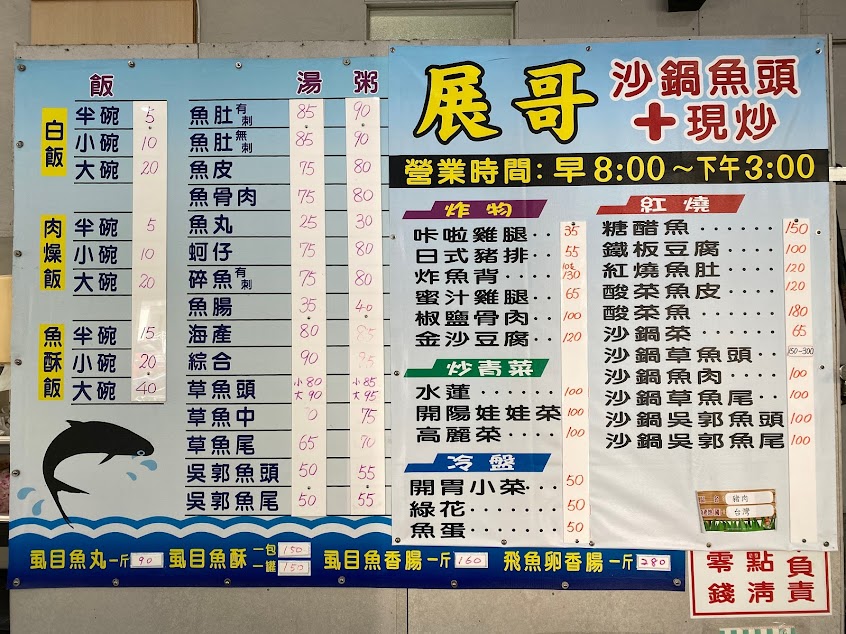 飯
白飯
半碗 5
小碗 10
大碗 20
肉燥飯
半碗 5
小碗 10
大碗 20
魚酥飯
半碗 15
小碗 20
大碗 40
湯 粥
魚肚有刺 85 90
魚肚無刺 85 90
魚皮 75 80
魚骨肉 75 80
魚丸 25 30
蚵仔 75 80
碎魚有刺 75 80
魚腸 35 40
海產 80 85
綜合 90 95
草魚頭 小80 大90 小85 大95
草魚中 75
草魚尾 65 70
吳郭魚頭 50 55
吳郭魚尾 50 55
展哥
沙鍋魚頭
+現炒
營業時間:早8:00~下午3:00
炸物
咔啦雞腿‥ 35
日式豬排‥ 55
炸魚背‥‥ 130
蜜汁雞腿‥ 65
椒鹽骨肉‥ 100
金沙豆腐‥ 120
炒青菜
水蓮‥‥‥ 100
開陽娃娃菜 100
高麗菜‥‥ 100
冷盤
開胃小菜‥ 50
綠花‥‥‥ 50
魚蛋‥‥‥ 50
紅燒
糖醋魚‥‥‥ 150
鐵板豆腐‥‥ 100
紅燒魚肚‥‥ 120
酸菜魚皮‥‥ 120
酸菜魚‥‥‥ 180
沙鍋菜‥‥‥ 65
沙鍋草魚頭‥ 150-300
沙鍋魚肉‥‥ 100
沙鍋草魚尾‥ 100
沙鍋吳郭魚頭 100
沙鍋吳郭魚尾 100
豬肉
台灣
虱目魚丸一斤 90 虱目魚酥 一包 150 一罐 150 虱目魚香腸一斤 160 飛魚卵香腸一斤 280
零錢 點清 負責